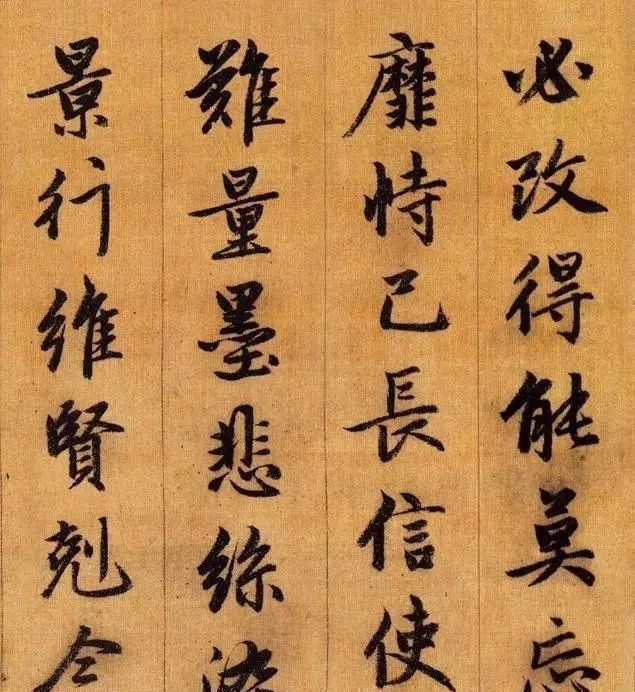 必改得能莫忘
靡恃己長信使
難量墨悲絲染
景行維賢剋念